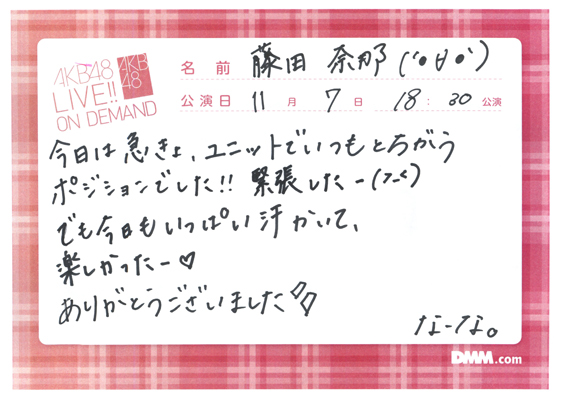 AKB48
LIVE!!
ON DEMAND
AKB
48
名前 藤田 奈那 (´•ㅂ•`)
公演日 11月 7日 18:30公演
今日は急きょ、ユニットでいつもとちがう
ポジションでした!! 緊張したー(>_<)
でも今日もいっぱい汗かいて、
楽しかったー♡
ありがとうございました
なーな。
DMM.com